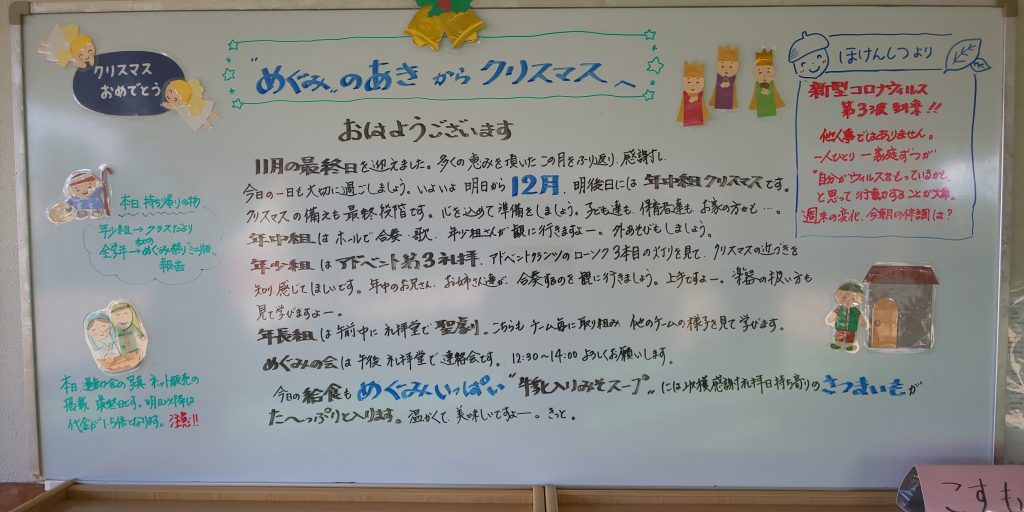 クリスマス
おめでとう
"めぐみ"のあきからクリスマスへ
おはようございます
11月の最終日を迎えました。多くの恵みを頂いたこの月をふり返り、感謝し、
今日の一日も大切に過ごしましょう。いよいよ明日から12月、明後日には年中組クリスマスです。
クリスマスの備えも最終段階です。心を込めて準備をしましょう。子ども達も、保育者達も、お家の方々も…。
年中組はホールで合奏・歌、年少組さんが観に行きますよー。外あそびもしましょう。
年少組はアドベント第3礼拝、アドベントクランツのローソク3本目の灯りを見て、クリスマスの近づきを
知り、感じてほしいです。年中のお兄さん、お姉さん達が、合奏するのを観に行きましょう。上手ですよー。楽器の扱い方も
見て学びますよー。
年長組は午前中に礼拝堂で聖劇。こちらもチーム毎に取り組み、他のチームの様子を見て学びます。
めぐみの会は午後、礼拝堂で連絡会です。12:30〜14:00 よろしくお願いします。
今日の給食もめぐみいっぱい"牛乳入りみそスープ"には収穫感謝礼拝日持ち寄りのさつまいもが
た〜っぷりと入ります。温かくて、美味しいですよー。きっと。
本日持ち帰りの物
年少組→クラスだより
全学年→秋のめぐみ祭り ミニ版
報告
本日、運動会の写真、ネット販売の
掲載、最終日です。明日以降は
代金が1.5倍になります。注意!!
ほけんしつより
新型コロナウィルス
第3波到来!!
他人事ではありません。
一人ひとり 一家庭ずつが
"自分がウィルスをもっているかも"
と思って行動することが大事。
週末の変化、今朝の体調は?
こすも